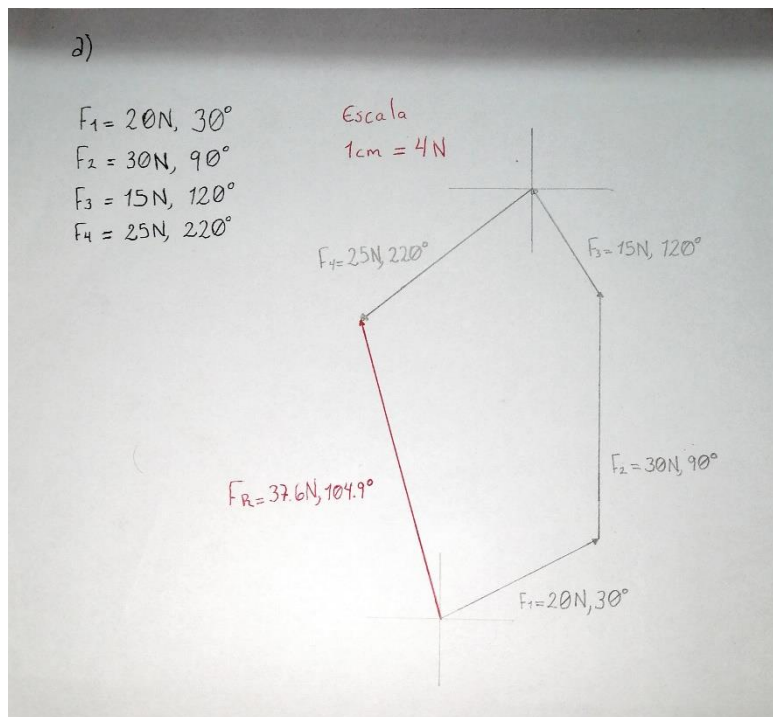 a)
F1 = 20N, 30°
F2 = 30N, 90°
F3 = 15N, 120°
F4 = 25N, 220°
Escala
1cm = 4N
F4=25N,220°
F3=15N, 120°
F2=30N,90°
FR=37.6N,104.9°
F1=20N,30°